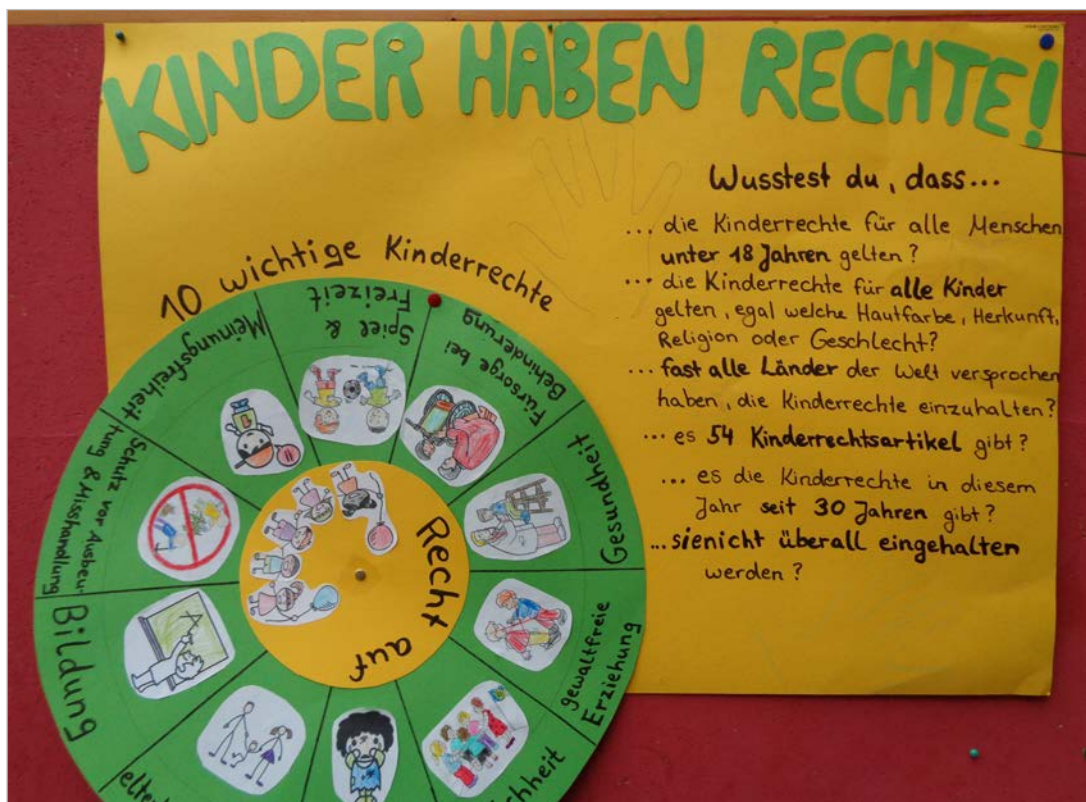 KINDER HABEN RECHTE!
Wusstest du, dass...
... die Kinderrechte für alle Menschen
unter 18 Jahren gelten?
... die Kinderrechte für alle Kinder
gelten, egal welche Hautfarbe, Herkunft,
Religion oder Geschlecht?
... fast alle Länder der Welt versprochen
haben, die Kinderrechte einzuhalten?
... es 54 Kinderrechtsartikel gibt?
... es die Kinderrechte in diesem
Jahr seit 30 Jahren gibt?
...sienicht überall eingehalten
werden?
10 wichtige Kinderrechte
Recht auf
Spiel &
Freizeit
Fürsorge bei
Behinderung
Gesundheit
gewaltfreie
Erziehung
Bildung
Schutz vor Ausbeu-
tung & Misshandlung
Meinungsfreiheit